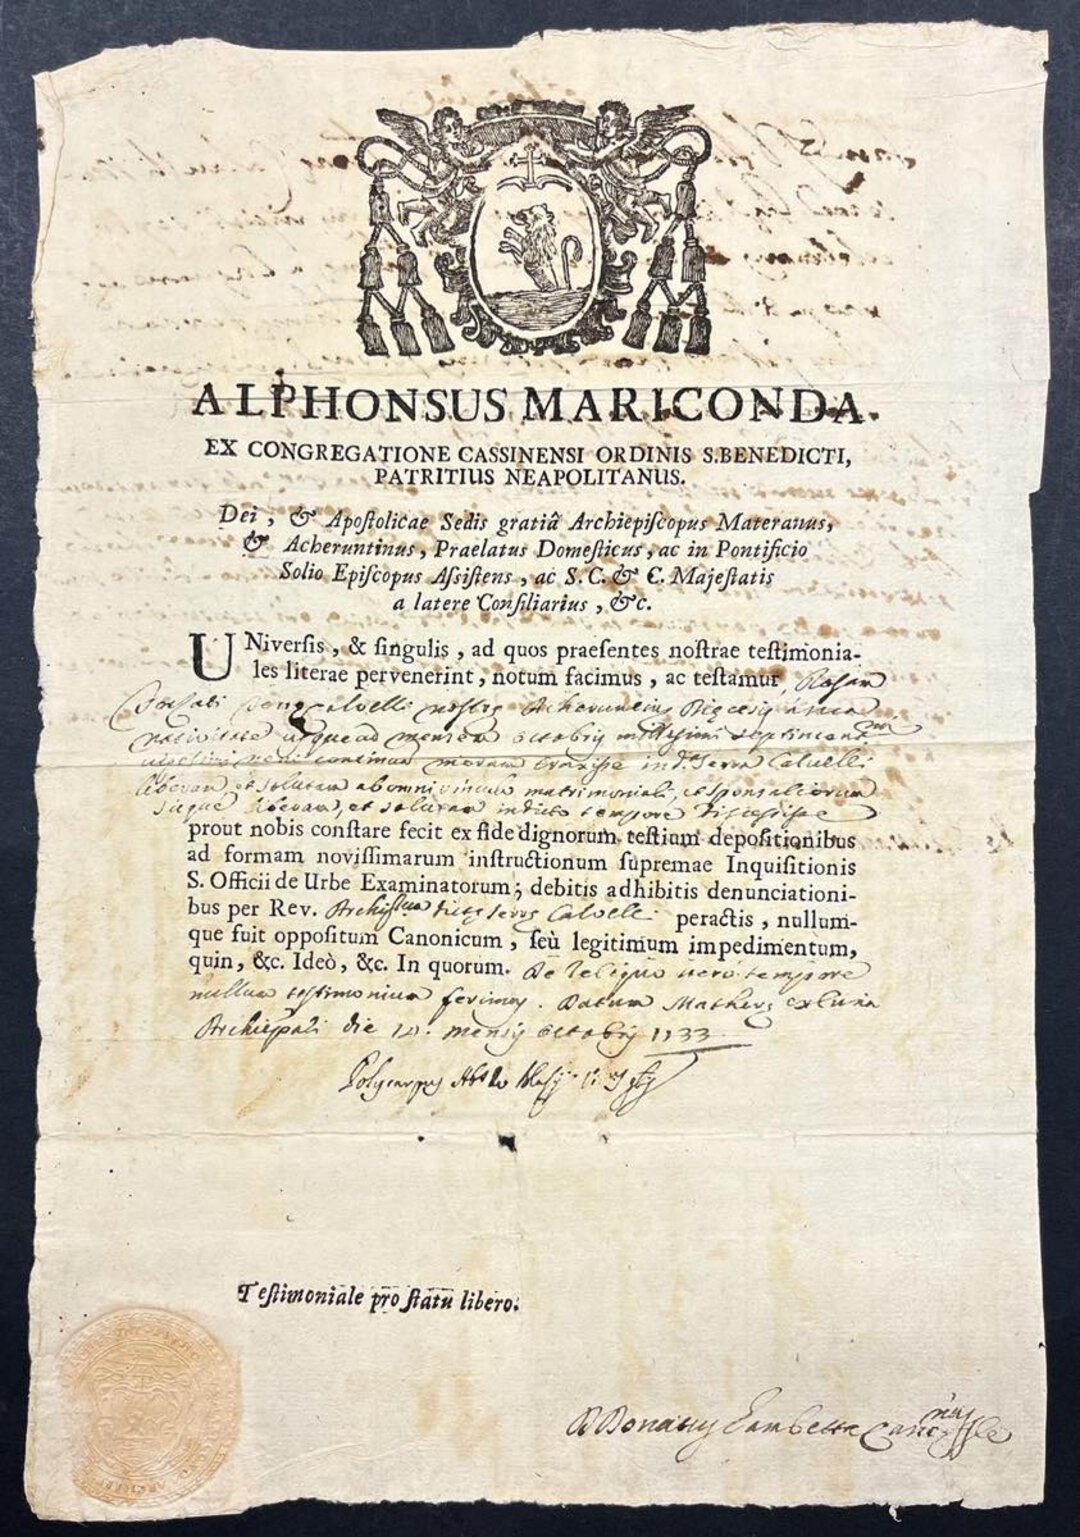 ALPHONSUS MARICONDA.
EX CONGREGATIONE CASSINENSI ORDINIS S.BENEDICTI,
PATRITIUS NEAPOLITANUS.
Dei, & Apoſtolicae Sedis gratiâ Archiepiſcopus Materanus,
& Acheruntinus, Praelatus Domeſticus, ac in Pontificio
Solio Epiſcopus Aſſiſtens, ac S. C. & C. Majeſtatis
a latere Conſiliarius, &c.
UNiverſis, & ſingulis, ad quos praeſentes noſtrae teſtimonia-
les literae pervenerint, notum facimus, ac teſtamur, Rosam
nostre Acheruntine Diecesis a sua
nativitate usque ad mensem octobris millesimi septincent
continuam moram traxisse in d. Terra Calvelli
liberam, et solutam ab omni vinculo matrimoniali, et sponsaliorum
sicque liberam, et solutam indicto tempore discessisse
prout nobis conſtare fecit ex fide dignorum teſtium depoſitionibus
ad formam noviſſimarum inſtructionum ſupremae Inquiſitionis
S. Officii de Urbe Examinatorum; debitis adhibitis denunciationi-
bus per Rev. dicte Terre Calvelli peractis, nullum-
que fuit oppoſitum Canonicum, ſeù legitimum impedimentum,
quin, &c. Ideò, &c. In quorum. De reliquo vero tempore
nullum testimonium ferimus. Datum Mathere ex Curia
Archiepali die 14. mensis octobris 1733
Polycarpus
Teſtimoniale pro ſtatu libero.
D Donatus